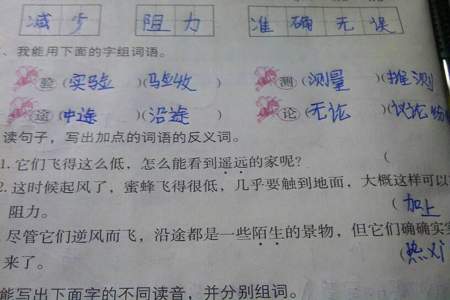 减少 阻力 准确无误
、我能用下面的字组词语。
验(实验)(验收) 测(测量)(推测)
途(中途)(沿途) 论(无论)(议论
读句子，写出加点的词语的反义词。
1.它们飞得这么低，怎么能看到遥远的家呢？ (
2.这时候起风了，蜜蜂飞得很低，几乎要触到地面，大概这样可以
阻力。 (加上
尽管它们逆风而飞，沿途都是一些陌生的景物，但它们确确实实
来了。 (熟
能写出下面字的不同读音，并分别组词。